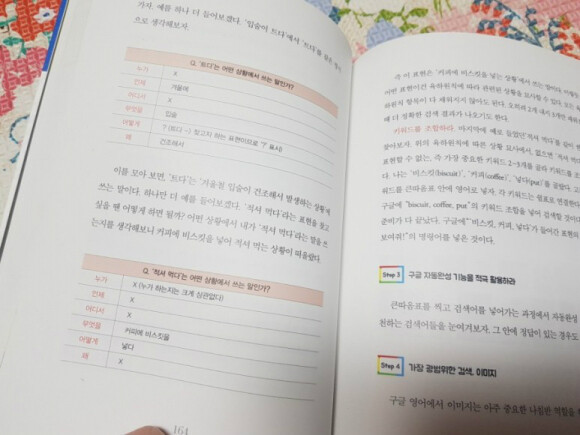 가자. 예를 하나 더 들어보겠다. '입술이 트다'에서 '트다'를
으로 생각해보자.
Q. '트다'는 어떤 상황에서 쓰는 말인가?
누가 X
언제 겨울에
어디서 X
무엇을 입술
어떻게 ? (트다 -> 찾고자 하는 표현이므로 '?' 표시)
왜 건조해서
이를 모아 보면, '트다'는 '겨울철 입술이 건조해서 발생하는 상황'에
쓰는 말이다. 하나만 더 예를 들어보겠다. '적셔 먹다'라는 표현을 찾고
싶을 땐 어떻게 하면 될까? 어떤 상황에서 내가 '적셔 먹다'라는 말을 쓰
는지를 생각해보니 커피에 비스킷을 넣어 적셔 먹는 상황이 떠올랐다.
Q. '적셔 먹다'는 어떤 상황에서 쓰는 말인가?
누가 X (누가 하는지는 크게 상관없다)
언제 X
어디서 X
무엇을 커피에 비스킷을
어떻게 넣다
왜 X
164
즉 이 표현은 '커피에 비스킷을 넣는 상황'에서 쓰는 말이다. 이렇듯
어떤 표현이건 육하원칙에 따라 관련된 상황을 묘사할 수 있다. 모든
하원칙 항목이 다 채워지지 않아도 된다. 오히려 2개 내지 3개만 채워
때 더 정확한 검색 결과가 나오기도 한다.
키워드를 조합하라. 마지막에 예로 들었던 '적셔 먹다'를 같이
찾아보자. 위의 육하원칙에 따른 상황 묘사에서, 없으면 '적셔 먹
표현할 수 없는, 즉 가장 중요한 키워드 2~3개를 골라 키워드를
다. 나는 '비스킷(biscuit)', '커피(coffee)', '넣다(put)'을 골랐다.
워드를 큰따옴표 안에 영어로 넣자. 각 키워드는 쉼표로 연결한다
구글에 "biscuit, coffee, put"의 키워드 조합을 넣어 검색할
준비가 다 끝났다. 구글에 "'비스킷, 커피, 넣다'가 들어간 표현의
보여줘!"의 명령어를 넣은 것이다.
Step 3 구글 자동완성 기능을 적극 활용하라
큰따옴표를 찍고 검색어를 넣어가는 과정에서 자동완성
천하는 검색어들을 눈여겨보자. 그 안에 정답이 있는 경우도
Step 4 가장 광범위한 검색, 이미지
구글 영어에서 이미지는 아주 중요한 나침반 역할을